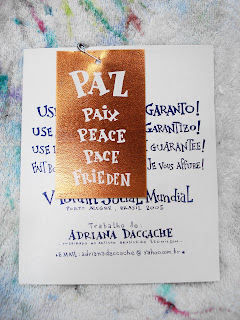 PAZ
PAIX
PEACE
PACE
FRIEDEN
USE GARANTO!
USE GARANTIZO!
USE I GUARANTEE!
FAIT JE VOUS ASSURE!
V SOCIAL MUNDIAL
PORTO ALEGRE, BRASIL 2005
Trabalho de:
ADRIANA DACCACHE
E.MAIL: adrianadaccache@yahoo.com.br